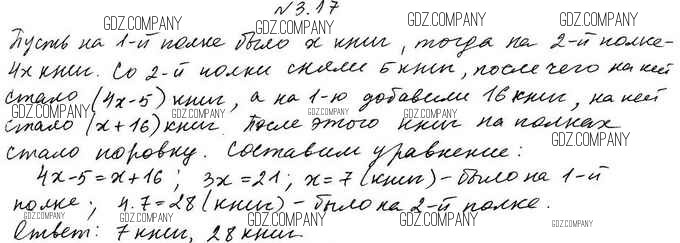 №3.17
Пусть на 1-й полке было x книг, тогда на 2-й полке-
4x книг. Со 2-й полки сняли 5 книг, после чего на ней
стало (4x-5) книг, а на 1-ю добавили 16 книг, на ней
стало (x+16) книг. После этого книг на полках
стало поровну. Составим уравнение:
4x-5=x+16; 3x=21; x=7 (книг) - было на 1-й
полке; 4·7=28 (книг) - было на 2-й полке.
Ответ: 7 книг, 28 книг.
GDZ.COMPANY
GDZ.COMPANY
GDZ.COMPANY
GDZ.COMPANY
GDZ.COMPANY
GDZ.COMPANY
GDZ.COMPANY
GDZ.COMPANY
GDZ.COMPANY
GDZ.COMPANY
GDZ.COMPANY
GDZ.COMPANY